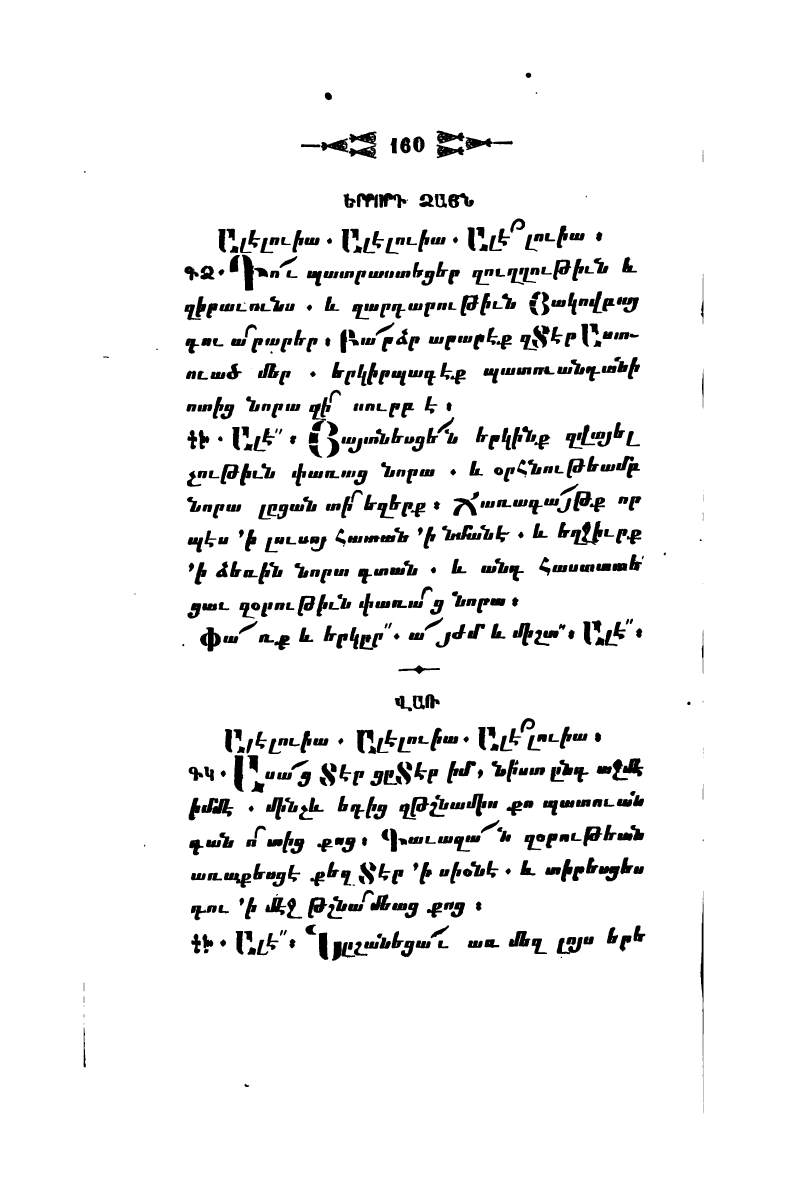 160
ԵՐՐՈՐԴ ՁԱՅՆ
Ալէլուիա ․ Ալէլուիա ․ Ալէ՞լուիա ։
ԳՁ ․ Դո՜ւ պատրաստեցեր զուղղութիւն և
զիրաւունս ․ և զարդարութիւն Յակովբայ
դու ա՛րարեր ։ Բա՜րձր արարէք զՏէր Աստ-
ուած մեր ․ երկիրպագէք պատուանդանի
ոտից նորա զի՛ սուրբ է ։
ԳԿ ․ Ալէ՛՛ ։ Յայտնեսցե՜ն երկինք զվայել
չութիւն փառաց նորա ․ և օրհնութեամբ
նորա լըցան տի՛եզերք ։ Ճառագա՜յթք որ
պէս ՚ի լուսոյ Հատան ՚ի նմանէ ․ և եղջիւրք
՚ի ձեռին նորա գտան ․ և անդ Հաստատե
ցաւ զօրութիւն փառա՛ց նորա ։
Փա՜ռք և երկըր՛՛ ․ ա՜յժմ և միշտ՛՛ ։ Ալէ՛՛ ։
ՎԱՌ
Ալէլուիա ․ Ալէլուիա ․ Ալէ՞լուիա ։
ԳԿ ․ Ասա՜ց Տէր ցըՏէր իմ, նի՛ստ ընդ աջմէ
իմմէ ․ մինչև եդից զթշնամիս քո պատուան
դան ո՛տից քոց ։ Գաւազա՜ն զօրութեան
առաքեսցէ քեզ Տէր ՚ի սիօնէ ․ և տիրեսցես
դու ՚ի մէջ թշնա՛մեաց քոց ։
ԳԿ ․ Ալէ՛՛ ։ Նըշանեցա՜ւ առ մեզ լոյս երե